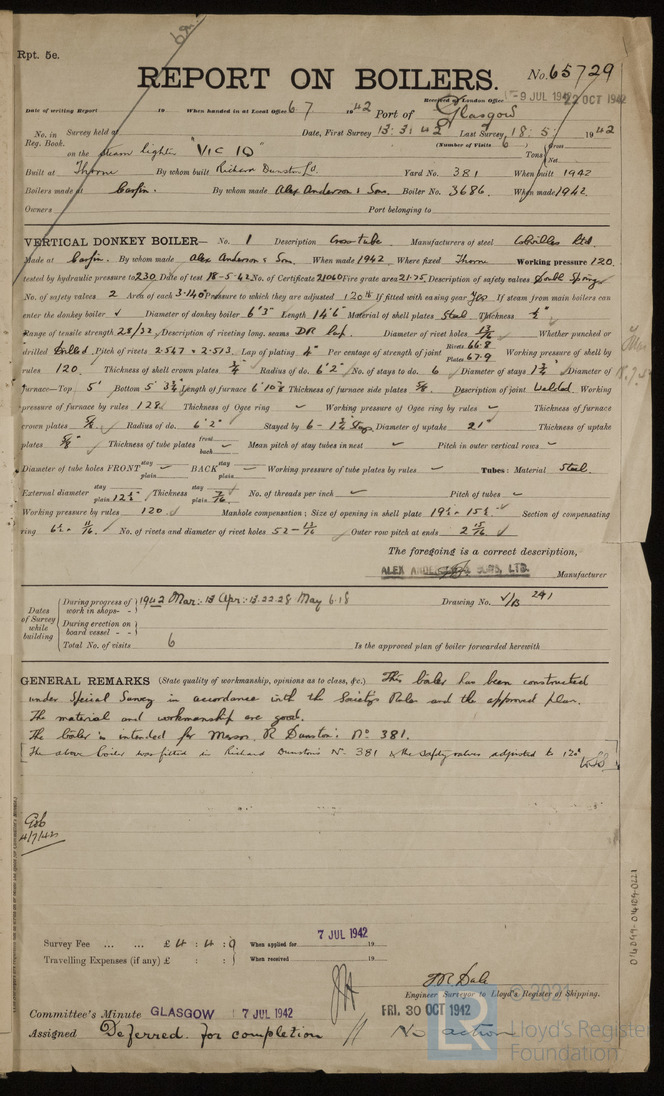 Rpt. 5e.
REPORT ON BOILERS.
No. 65729
Received at London Office 9 JUL 1942 22 OCT 1942
Date of writing Report 19 When handed in at Local Office 6 7 1942 Port of Glasgow
No. in Reg. Book. Survey held at Date, First Survey 13. 3. 42 Last Survey 18. 5. 1942
(Number of Visits 6)
on the steam lighter "VIC 10" Tons Gross Net
Built at Thorne By whom built Richard Dunston Ld. Yard No. 381 When built 1942
Boilers made at Carfin. By whom made Alex Anderson & Son. Boiler No. 3686. When made 1942.
Owners Port belonging to
VERTICAL DONKEY BOILER— No. 1 Description Cross tube Manufacturers of steel Colvilles Ltd.
Made at Carfin. By whom made Alex Anderson & Son. When made 1942. Where fixed Thorne Working pressure 120.
tested by hydraulic pressure to 230 Date of test 18-5-42 No. of Certificate 21060 Fire grate area 21.75 Description of safety valves Double Spring
No. of safety valves 2 Area of each 3.140 Pressure to which they are adjusted 120 lb If fitted with easing gear Yes If steam from main boilers can
enter the donkey boiler Diameter of donkey boiler 6' 3" Length 14' 6" Material of shell plates Steel Thickness
Range of tensile strength 28/32 Description of riveting long. seams DR lap. Diameter of rivet holes 13/16 Whether punched or
drilled Drilled Pitch of rivets 2.547 & 2.513. Lap of plating 4" Per centage of strength of joint Rivets 66.8 Plates 67.9 Working pressure of shell by
rules 120. Thickness of shell crown plates Radius of do. 6' 2" No. of stays to do. 6 Diameter of stays 1 3/4 Diameter of
furnace—Top 5' Bottom 5' 3 3/4 Length of furnace Thickness of furnace side plates 5/8. Description of joint Welded Working
pressure of furnace by rules 128 Thickness of Ogee ring Working pressure of Ogee ring by rules Thickness of furnace
crown plates 5/8 Radius of do. 6' 2" Stayed by 6 - 1 3/4 Stays Diameter of uptake 21" Thickness of uptake
plates Thickness of tube plates front back Mean pitch of stay tubes in nest Pitch in outer vertical rows
Diameter of tube holes FRONT stay plain BACK stay plain Working pressure of tube plates by rules Tubes: Material Steel.
External diameter stay plain 12 1/2 Thickness stay plain 7/16 No. of threads per inch Pitch of tubes
Working pressure by rules 120 Manhole compensation; Size of opening in shell plate 19 1/2 × 15 1/2 Section of compensating
ring No. of rivets and diameter of rivet holes 52 - 13/16 Outer row pitch at ends
The foregoing is a correct description,
ALEX ANDERSON & SONS, LTD. Manufacturer
Dates of Survey while building
During progress of work in shops- - 1942 Mar: 13 Apr: 13.22.28 May 6.18 Drawing No. V/B 291
During erection on board vessel - -
Total No. of visits 6 Is the approved plan of boiler forwarded herewith
GENERAL REMARKS (State quality of workmanship, opinions as to class, &c.) This boiler has been constructed
under Special Survey in accordance with the Society's Rules and the approved plan.
The material and workmanship are good.
The boiler is intended for Messrs R Dunston's No. 381.
The above boiler was fitted in Richard Dunston's No. 381 & the safety valves adjusted to 120
4/7/42
Survey Fee ... ... £ 4 : 4 : 0 When applied for 7 JUL 1942 19
Travelling Expenses (if any) £ : : When received 19
Engineer Surveyor to Lloyd's Register of Shipping.
Committee's Minute GLASGOW 7 JUL 1942 FRI. 30 OCT 1942
Assigned Deferred. for completion No action
© 2021
Lloyd's Register
Foundation